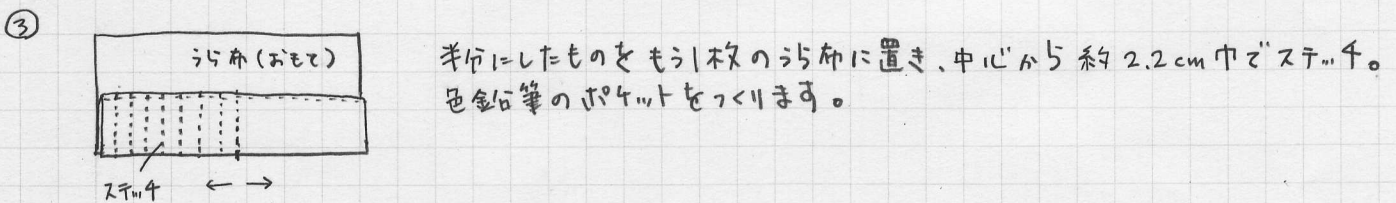 ③
うら布(おもて)
半分にしたものをもう1枚のうら布に置き、中心から 約 2.2cm巾でステッチ。
色鉛筆のポケットをつくります。
ステッチ ← →